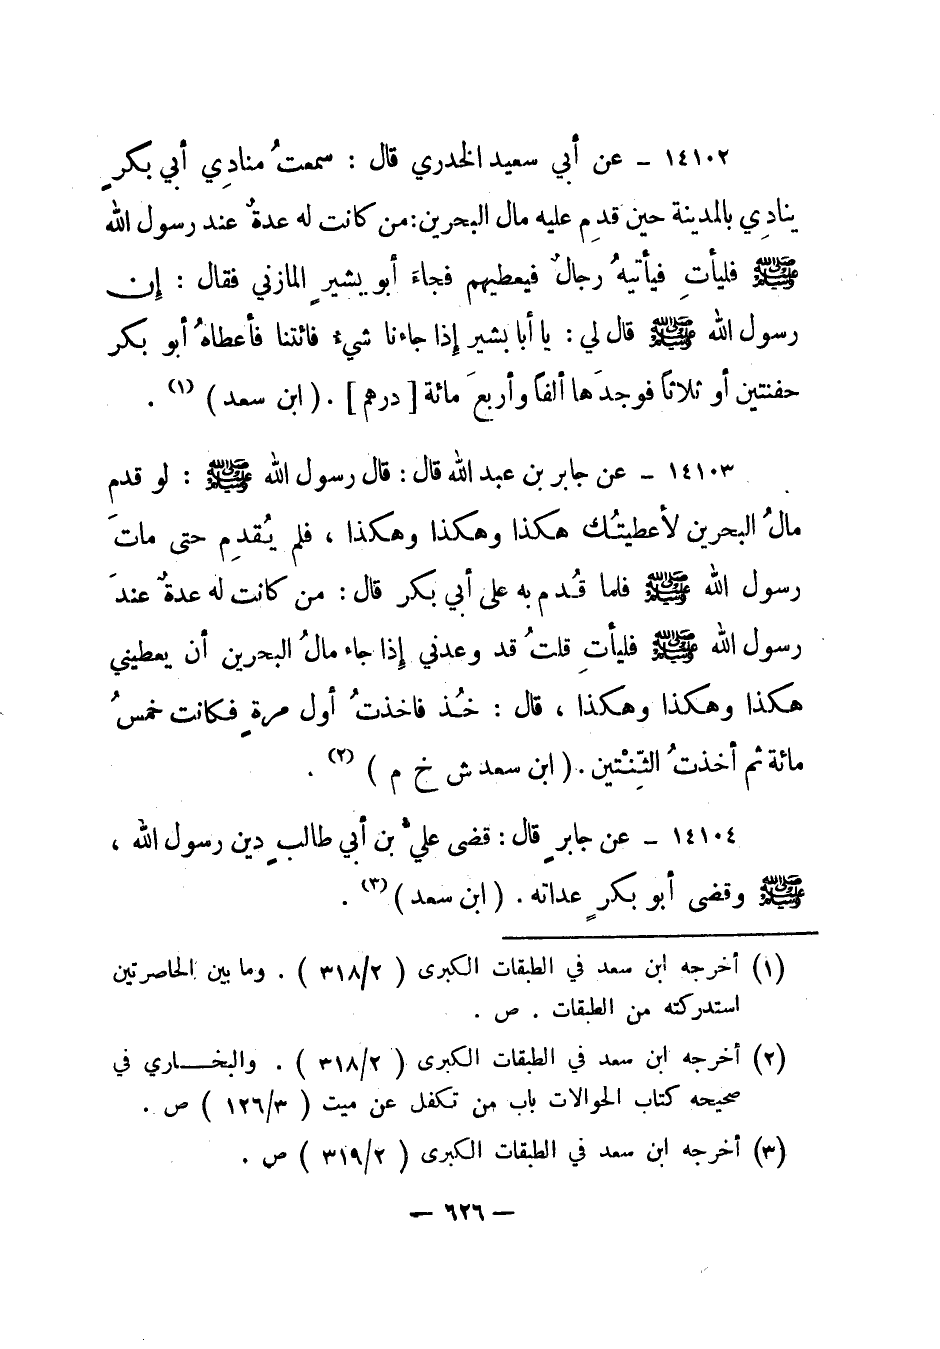 ١٤١٠٢ – عن أبي سعيد الخدري قال : سمعتُ منادِي أبي بكرٍ
ينادِي بالمدينة حين قدِم عليه مال البحرين:من كانت له عدةٌ عند رسول الله
ﷺ فليأتِ فيأتيهُ رجالٌ فيعطيهم فجاءَ أبو بشيرٍ المازني فقال : إن
رسول الله ﷺ قال لي : يا أبا بشير إذا جاءنا شيءٌ فائتنا فأعطاهُ أبو بكر
حفنتين أو ثلاثاً فوجدَها ألفاً وأربعَ مائة [ درهم ] . ( ابن سعد ) (١) .
١٤١٠٣ – عن جابر بن عبد الله قال : قال رسول الله ﷺ : لو قدم
مالُ البحرين لأعطيتُك هكذا وهكذا وهكذا ، فلم يُقدِم حتى ماتَ
رسول الله ﷺ فلما قُدم به على أبي بكر قال : من كانت له عدةٌ عندَ
رسول الله ﷺ فليأتِ قلتُ قد وعدني إذا جاء مالُ البحرين أن يعطيني
هكذا وهكذا وهكذا ، قال : خُذ فاخذتُ أول مرةٍ فكانت خمسُ
مائة ثم أخذتُ الثِّنْتين . ( ابن سعد ش خ م ) (٢) .
١٤١٠٤ – عن جابرٍ قال : قضى عليُّ بن أبي طالبٍ دين رسول الله ،
ﷺ وقضى أبو بكرٍ عداته . ( ابن سعد ) (٣) .
(١) أخرجه ابن سعد في الطبقات الكبرى ( ٣١٨/٢ ) . وما بين الحاصرتين
استدركته من الطبقات . ص .
(٢) أخرجه ابن سعد في الطبقات الكبرى ( ٣١٨/٢ ) . والبخاري في
صحيحه كتاب الحوالات باب من تكفل عن ميت ( ١٢٦/٣ ) ص .
(٣) أخرجه ابن سعد في الطبقات الكبرى ( ٣١٩/٢ ) ص .
– ٦٢٦ –